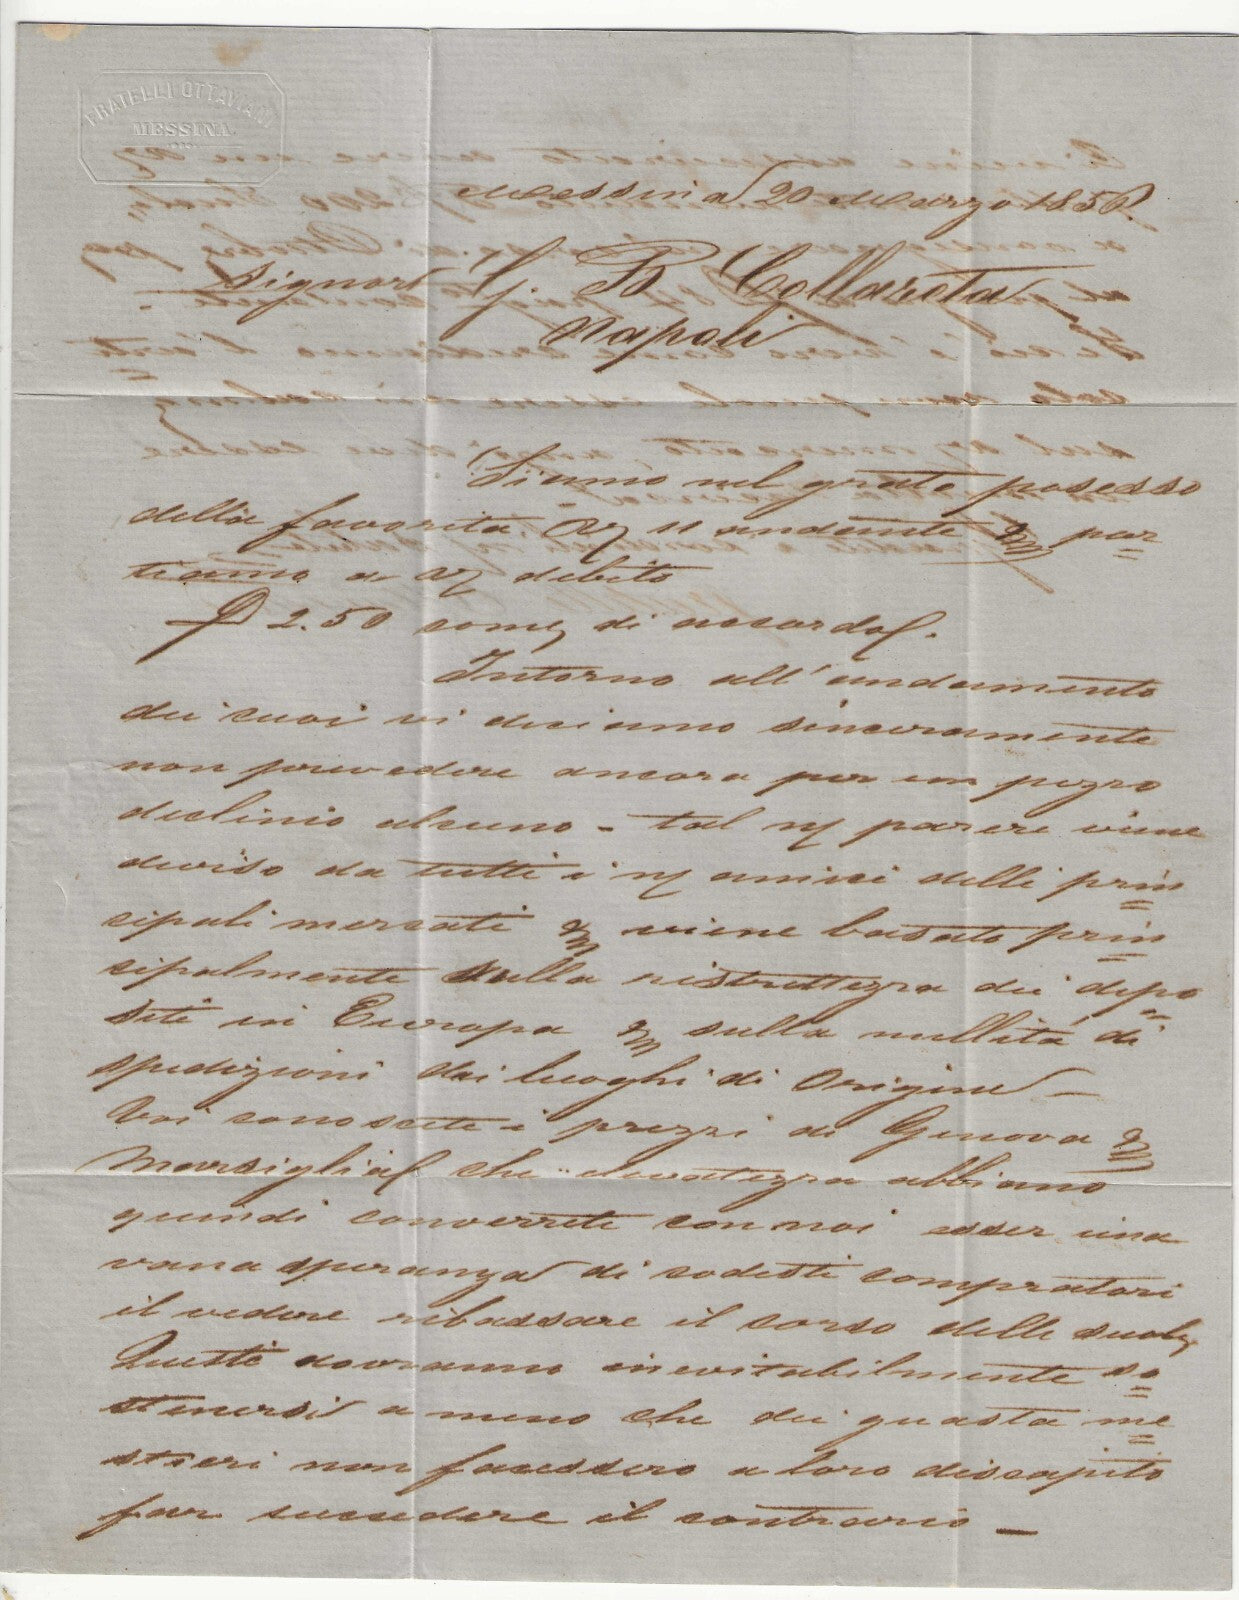 FRATELLI OTTAVIANI
MESSINA
Messina 20 Marzo 1856.
Signor G. B. Collareta
Napoli
Siamo nel grato possesso
della favorita 11 andante & par=
tiamo a debito
2.50 come di accordo.
Intorno all'andamento
dei cuoi vi diciamo sinceramente
non prevedere ancora per un pezzo
declinio alcuno - tal parere viene
deviso da tutti i amici delli prin=
cipali mercati & viene basato prin=
cipalmente sulla ristrettezza dei depo=
siti in Europa & sulla nullità di
spedizioni dai luoghi di origine -
Voi conoscete i prezzi di Genova &
Marsiglia che abbiamo
quindi converrete con noi esser una
vana speranza di codesti compratori
il vedere ribassare il corso delle suole
Queste dovranno inevitabilmente so=
stenersi a meno che dei guasta me=
stieri non facessero a loro discapito
far succedere il contrario -